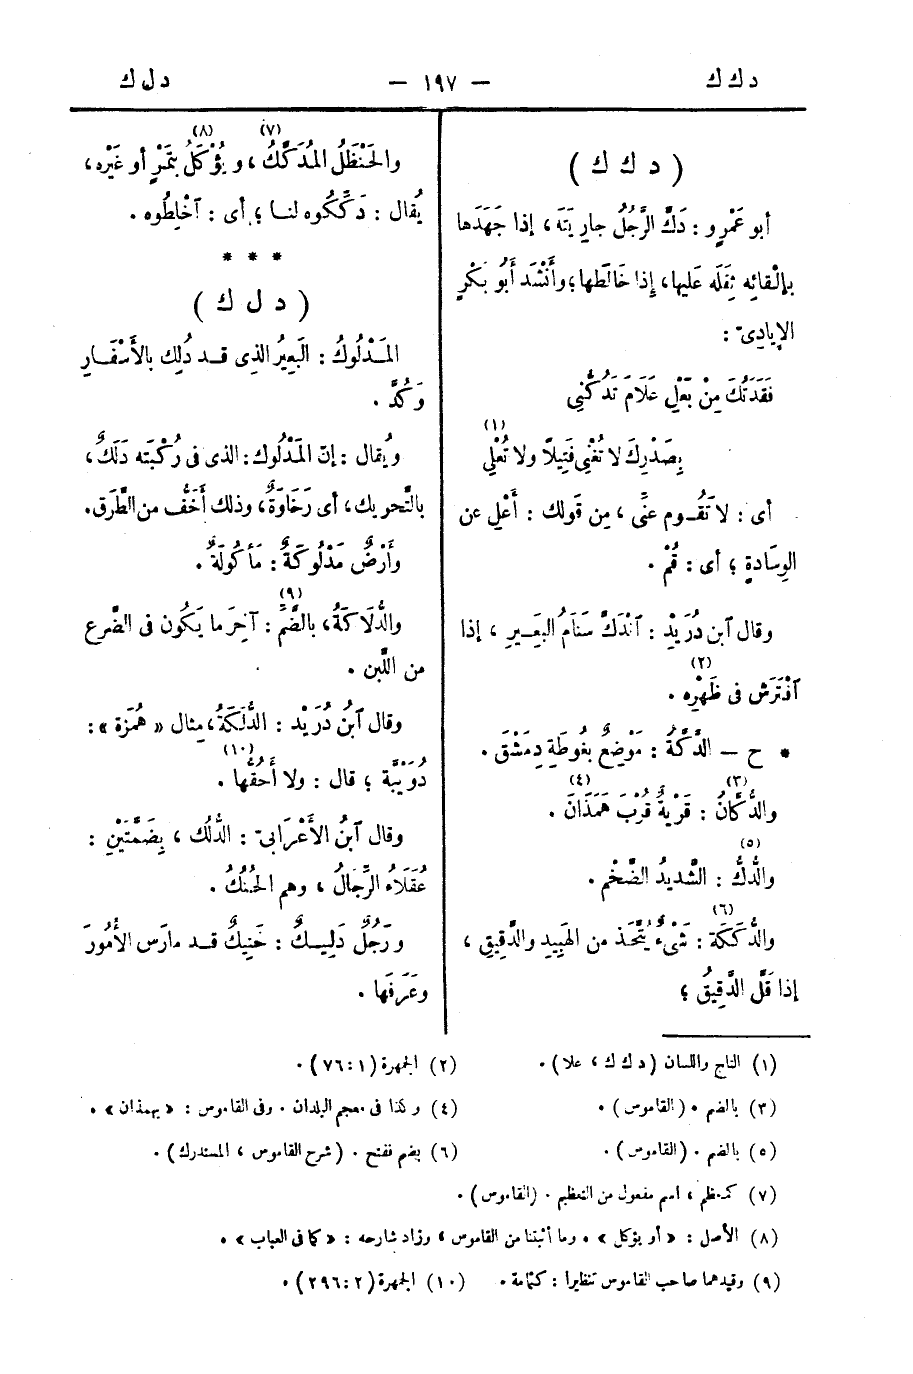 د ك ك
— ١٩٧ —
د ل ك
( د ك ك )
أبو عَمْرٍو : دَكَّ الرَّجُلُ جارِيَتَه ، إذا جَهَدَها
بإلْقائِه ثِقَلَه عَلَيها، إذا خَالَطَها ؛ وأَنْشَد أَبُو بَكْرٍ
الإيادِىّ :
فَقَدَتُكَ مِنْ بَعْلٍ عَلَامَ تَدُكُّنِى
بِصَدْرِكَ لا تُغْنِى فَتِيلًا ولا تُعْلِى (١)
أى : لا تَقُوم عنِّى ، مِن قَولك : أَعْلِ عن
الوِسَادةِ ؛ أى : قُمْ .
وقال ٱبن دُرَيْدٍ : ٱنْدَكَّ سَنَامُ البَعِيرِ ، إذا
ٱفْتَرَش فى ظَهْرِه (٢) .
* ح — الدَّكَّةُ : مَوْضِعٌ بغُوطَةِ دِمَشْقَ .
والدُّكَّانُ (٣) : قَرْيةٌ قُرْبَ هَمَذَانَ (٤) .
والدُّكُّ (٥) : الشَّديدُ الضَّخْم .
والدُّكَكَة (٦) : شَىْءٌ يُتَّخَذ من الهَبِيدِ والدَّقِيقِ ،
إذا قَلَّ الدَّقِيقُ ؛
والحَنْظَلُ المُدَكَّكُ (٧) ، و يُؤْكَلُ (٨) بتَمْرٍ أو غَيْرِه ،
يُقال : دَكِّكُوه لنا ؛ أى : ٱخْلِطُوه .
* * *
( د ل ك )
المَدْلُوكُ : البَعِيرُ الذى قد دُلِك بالأَسْفَارِ
وَكُدَّ .
ويُقال : إنّ المَدْلُوك : الذى فى رُكْبَتِه دَلَكٌ ،
بالتَّحرِيك ، أى رَخَاوَةٌ ، وذلك أَخَفُّ من الطَّرَق .
وأَرْضٌ مَدْلُوكَةٌ : مَأكُولَةٌ .
والدُّلَاكَةُ ، بالضَّمِّ (٩) : آخِرَ ما يَكُون فى الضَّرع
من اللَّبن .
وقال ٱبنُ دُرَيْد : الدُّلَكَةُ ، مِثال « هُمَزَة » :
دُوَيْبَّة ؛ قال : ولا أَحُقُّها (١٠) .
وقال ٱبنُ الأَعْرَابىّ : الدُّلُك ، بِضَمَّتَيْنِ :
عُقَلَاءُ الرِّجَالُ ، وهم الحُنُكُ .
ورَجُلٌ دَلِيكٌ : حَنِيكٌ قد مارَس الأُمُورَ
وعَرَفَها .
(١) التاج واللسان (د ك ك ، علا) .
(٢) الجمهرة (١ : ٧٦) .
(٣) بالضم . (القاموس) .
(٤) وكذا فى معجم البلدان . وفى القاموس : « بهمذان » .
(٥) بالضم . (القاموس) .
(٦) بضم ففتح . (شرح القاموس ، المستدرك) .
(٧) كمعظم ، اسم مفعول من التعظيم . (القاموس) .
(٨) الأصل : « أو يؤكل » . وما أثبتنا من القاموس ، وزاد شارحه : « كما فى العباب » .
(٩) وقيدهما صاحب القاموس تنظيرا : كثمامة .
(١٠) الجمهرة (٢ : ٢٩٦) .